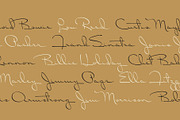 Bowie Lou Reed Curtis Mayf
Frank Sinatra James
Lennon Billie Holiday Chet Bak
Marley Jimmy Page Ella Fitzg
Armstrong Jim Morrison Bob